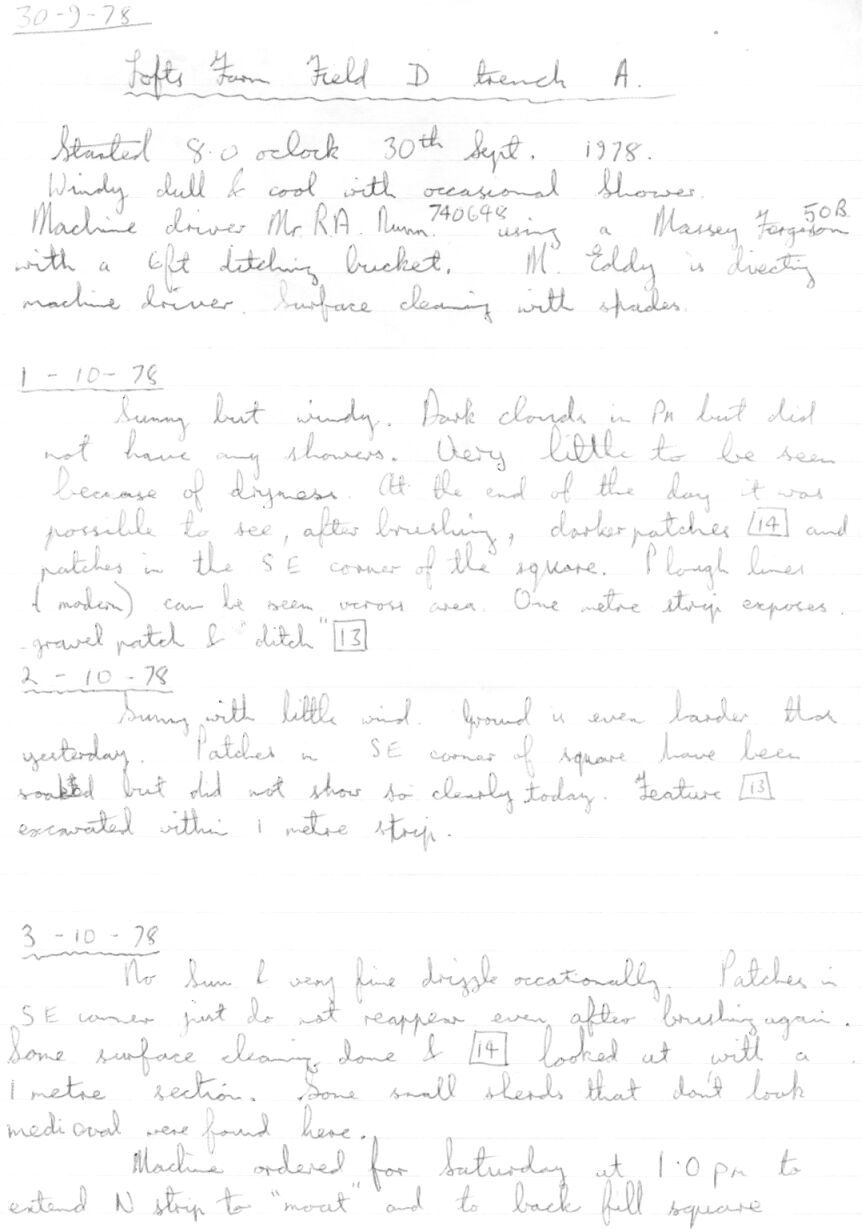 30-9-78
Lofts Farm Field D trench A.
Started 8.0 oclock 30th Sept. 1978.
Windy dull & cool with occasional shower.
Machine driver Mr. R.A. Nunn. 740648 using a Massey Ferguson 50B
with a 6ft ditching bucket. M. Eddy is directing
machine driver. Surface cleaning with spades.
1-10-78
Sunny but windy. Dark clouds in PM but did
not have any showers. Very little to be seen
because of dryness. At the end of the day it was
possible to see, after brushing, darker patches [14] and
patches in the SE corner of the square. Plough lines
(modern) can be seen across area. One metre strip exposes.
gravel patch & "ditch" [13]
2-10-78
Sunny with little wind. Ground is even harder than
yesterday. Patches in SE corner of square have been
soaked but did not show so clearly today. Feature [13]
excavated within 1 metre strip.
3-10-78
No Sun & very fine drizzle occationally. Patches in
SE corner just do not reappear even after brushing again.
Some surface cleaning done & [14] looked at with a
1 metre section. Some small sherds that don't look
medi oval were found here.
Machine ordered for Saturday at 1.0 pm to
extend N strip to "moat" and to back fill square